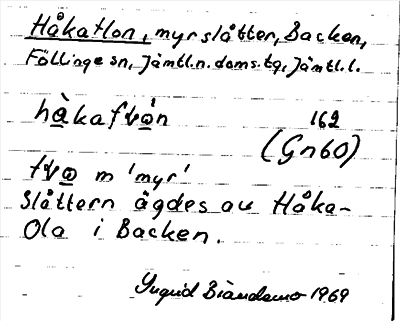 Håkatlon, myrslåtter, Backen,
Föllinge sn, Jämtl.n. doms.tg, Jämtl.l.
hàkaftvo̱n 162
(Gn60)
tvo̱ m 'myr'
Slåttern ägdes av Håka-
Ola i Backen.
Ingrid 1969